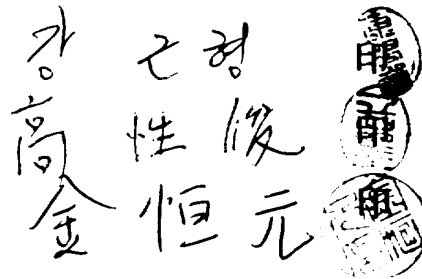 강 근형
高 性俊
金 恒元